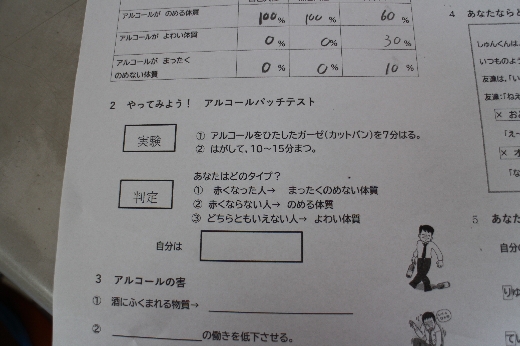 アルコールが のめる体質 100% 100% 60%
アルコールが よわい体質 0% 0% 30%
アルコールが まったく のめない体質 0% 0% 10%
2 やってみよう! アルコールパッチテスト
実験
① アルコールをひたしたガーゼ(カットバン)を7分はる。
② はがして、10~15分まつ。
判定
あなたはどのタイプ?
① 赤くなった人→ まったくのめない体質
② 赤くならない人→ のめる体質
③ どちらともいえない人→ よわい体質
自分は
3 アルコールの害
① 酒にふくまれる物質→
② の働きを低下させる。
4 あなたならと
しゅんくんは、
いつものよう
友達は、「い
友達:「ねえ
× お
「えー
× オ
「な
5 あなた
自分の
りゆ
てい